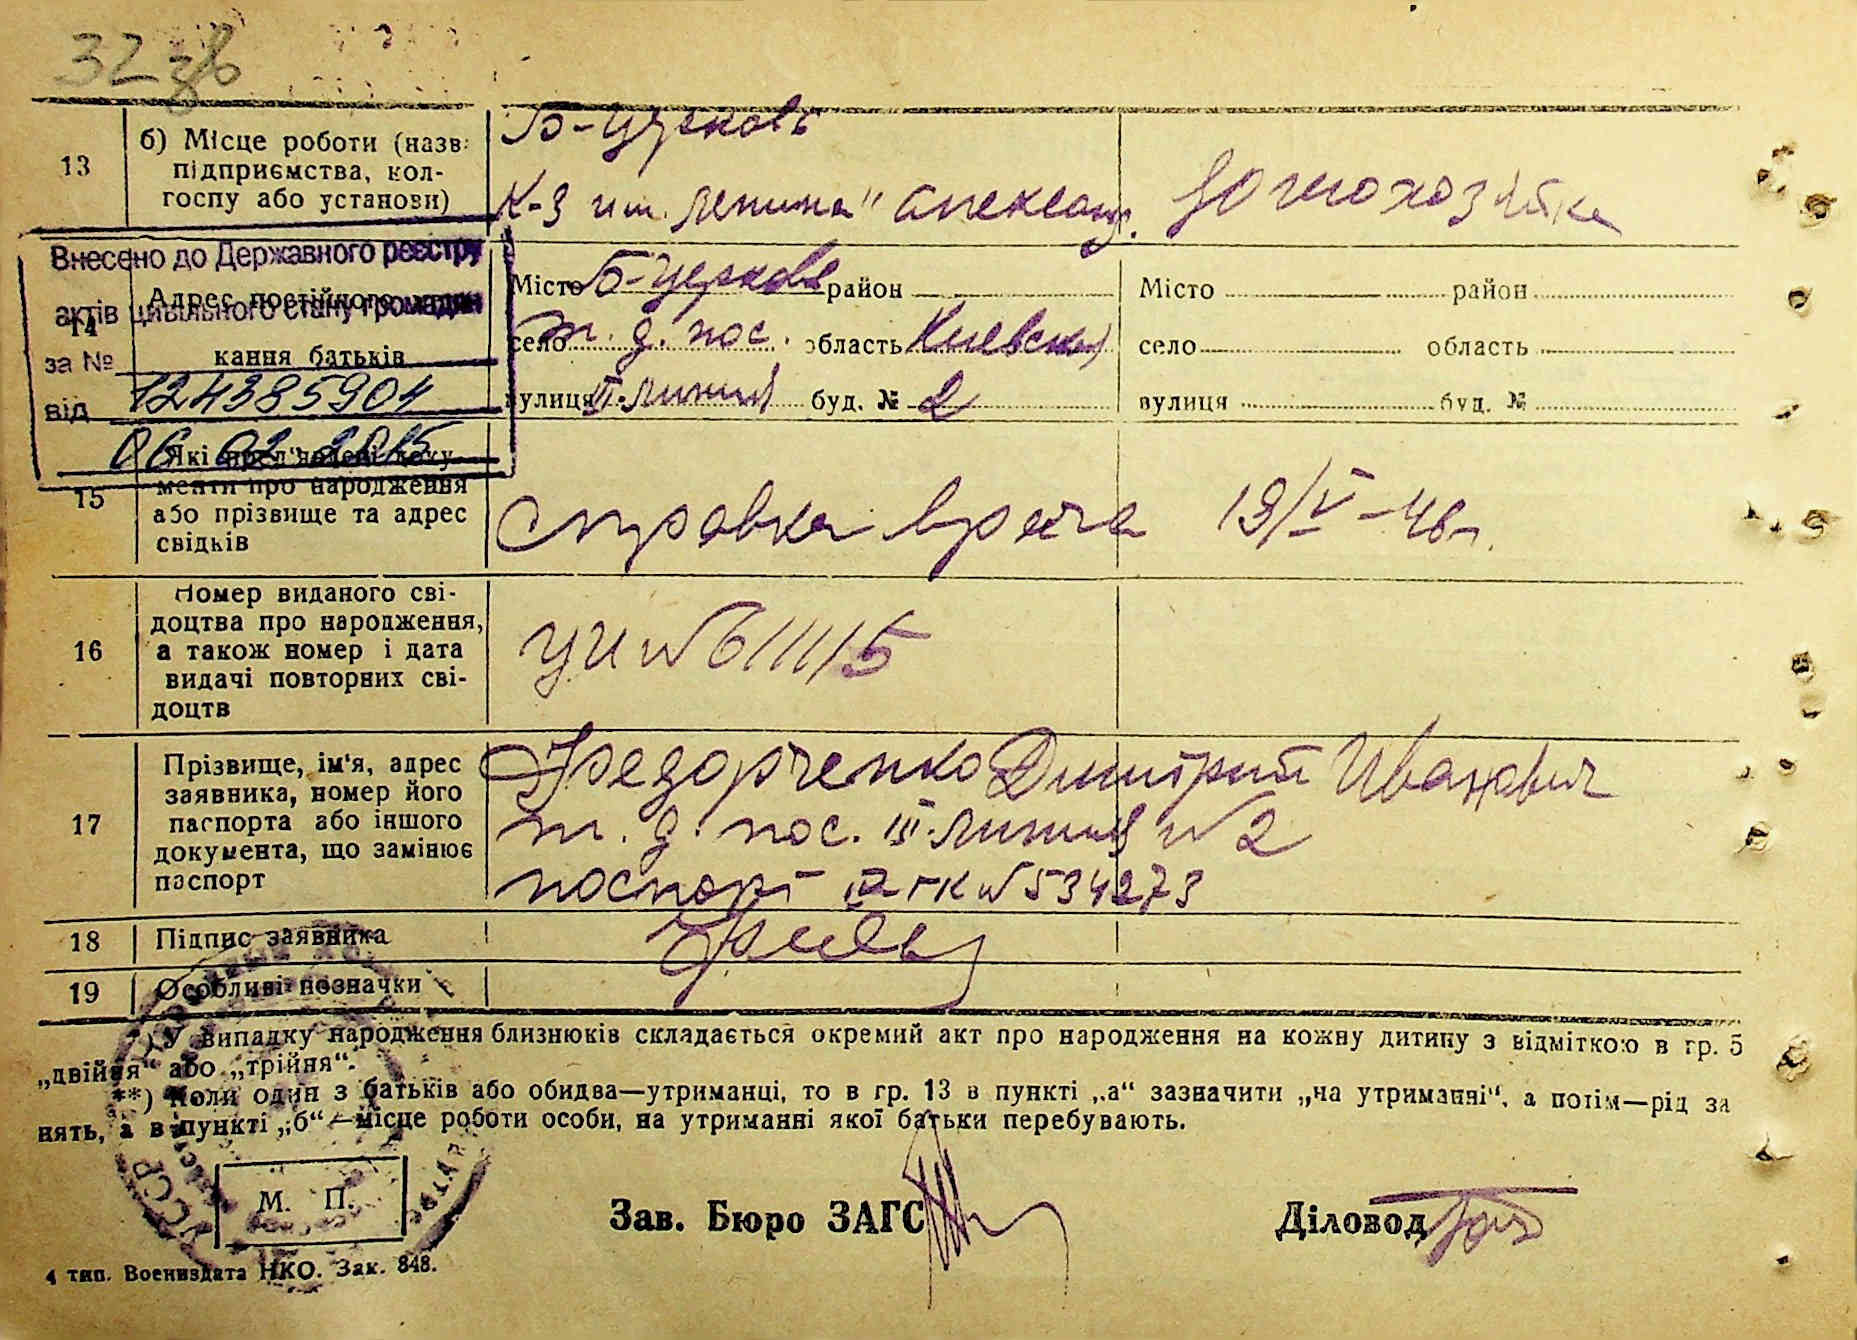 32
13
б) Місце роботи (назв.
підприємства, кол-
госпу або установи)
Б-Церковь
К-з им. Ленина"
домохозяйка
Внесено до Державного реєстру
актів цивільного стану громадян
за №
124385904
від
06.02.2015
14
Адрес постійного
кання батьків
Місто Б-Церковь район
село т. д. пос. область Киевская
вулиця III-линия буд. № 2
Місто район
село область
вулиця буд. №
15
Які пред'явлені доку-
менти про народження
або прізвище та адрес
свідків
Справка врача 19/V-46г.
16
Номер виданого сві-
доцтва про народження,
а також номер і дата
видачі повторних сві-
доцтв
УИ №
17
Прізвище, ім'я, адрес
заявника, номер його
паспорта або іншого
документа, що замінює
паспорт
Федорченко Дмитрий Иванович
т. д. пос. III-линия №2
паспорт № 534273
18
Підпис заявника
19
Особливі позначки
*) У випадку народження близнюків складається окремий акт про народження на кожну дитину з відміткою в гр. 5
„двійня“ або „трійня“.
**) Коли один з батьків або обидва—утриманці, то в гр. 13 в пункті „а“ зазначити „на утриманні“, а потім—рід за
нять, а в пункті „б“—місце роботи особи, на утриманні якої батьки перебувають.
УССР
М. П.
Зав. Бюро ЗАГС
Діловод
4 тип. Воениздата НКО. Зак. 848.